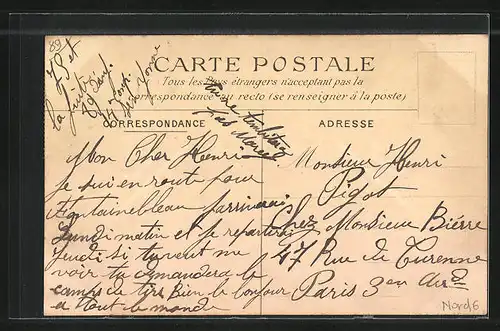 89
CARTE POSTALE
Tous les Pays étrangers n'acceptant pas la
correspondance au recto (se renseigner à la poste)
CORRESPONDANCE
ADRESSE
Mon Cher Henri
je sui en route pour
Fontainebleau
Lundi matin et je repartirai
Jeudi si tu veut me
voir tu demandera le
camps de tire Bien le bonjour
a tout le monde
Monsieur Henri
Pigot
Chez Monsieur Bièrre
47 Rue de Turenne
Paris 3 en Ard
Nord6